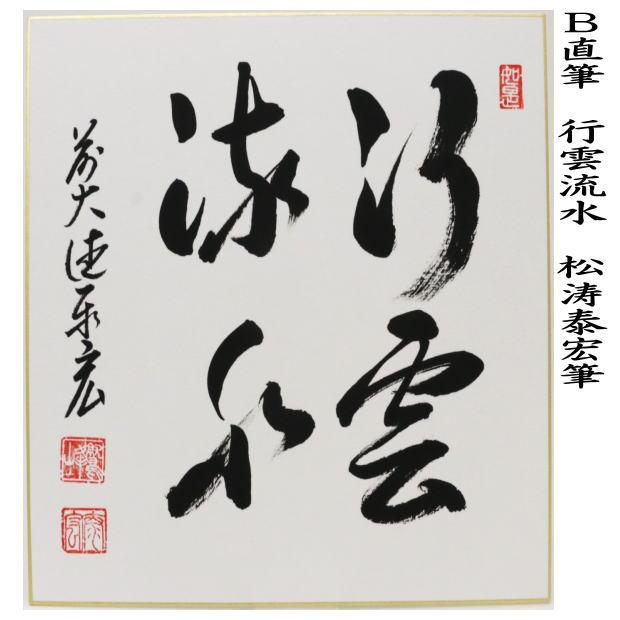 B直筆　行雲流水　松涛泰宏筆
如是
行雲
流水
前大徳泰宏
泰宏